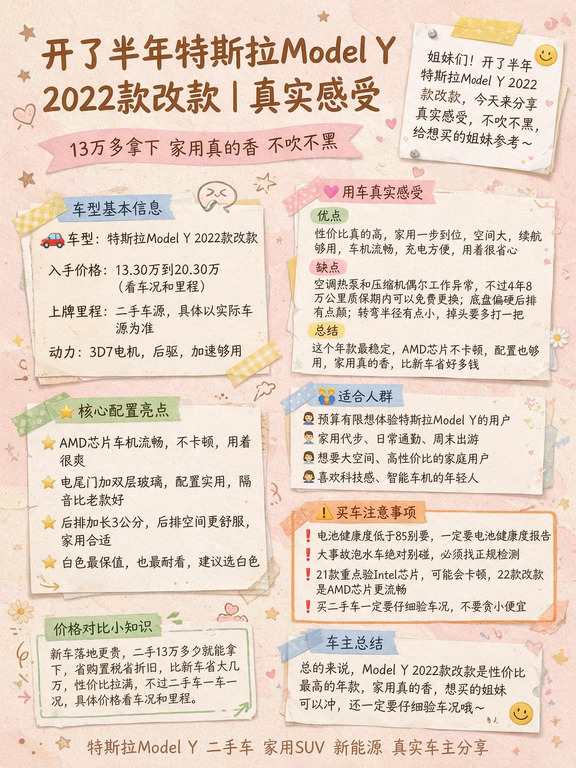 开了半年特斯拉Model Y
2022款改款 | 真实感受
13万多拿下 家用真的香 不吹不黑
姐妹们！开了半年
特斯拉Model Y 2022
款改款，今天来分享
真实感受，不吹不黑，
给想买的姐妹参考～
车型基本信息
车型：特斯拉Model Y 2022款改款
入手价格：13.30万到20.30万
（看车况和里程）
上牌里程：二手车源，具体以实际车
源为准
动力：3D7电机，后驱，加速够用
用车真实感受
优点
性价比真的高，家用一步到位，空间大，续航
够用，车机流畅，充电方便，用着很省心
缺点
空调热泵和压缩机偶尔工作异常，不过4年8
万公里质保期内可以免费更换；底盘偏硬后排
有点颠；转弯半径有点小，掉头要多打一把
总结
这个年款最稳定，AMD芯片不卡顿，配置也够
用，家用真的香，比新车省好多钱
核心配置亮点
AMD芯片车机流畅，不卡顿，用着
很爽
电尾门加双层玻璃，配置实用，隔
音比老款好
后排加长3公分，后排空间更舒服，
家用合适
白色最保值，也最耐看，建议选白色
适合人群
预算有限想体验特斯拉Model Y的用户
家用代步、日常通勤、周末出游
想要大空间、高性价比的家庭用户
喜欢科技感、智能车机的年轻人
买车注意事项
电池健康度低于85别要，一定要电池健康度报告
大事故泡水车绝对别碰，必须找正规检测
21款重点验Intel芯片，可能会卡顿，22款改款
是AMD芯片更流畅
买二手车一定要仔细验车况，不要贪小便宜
价格对比小知识
新车落地更贵，二手13万多少就能拿
下，省购置税省折旧，比新车省大几
万，性价比拉满，不过二手车一车一
况，具体价格看车况和里程。
车主总结
总的来说，Model Y 2022款改款是性价比
最高的年款，家用真的香，想买的姐妹
可以冲，还一定要仔细验车况哦～
特斯拉Model Y 二手车 家用SUV 新能源 真实车主分享